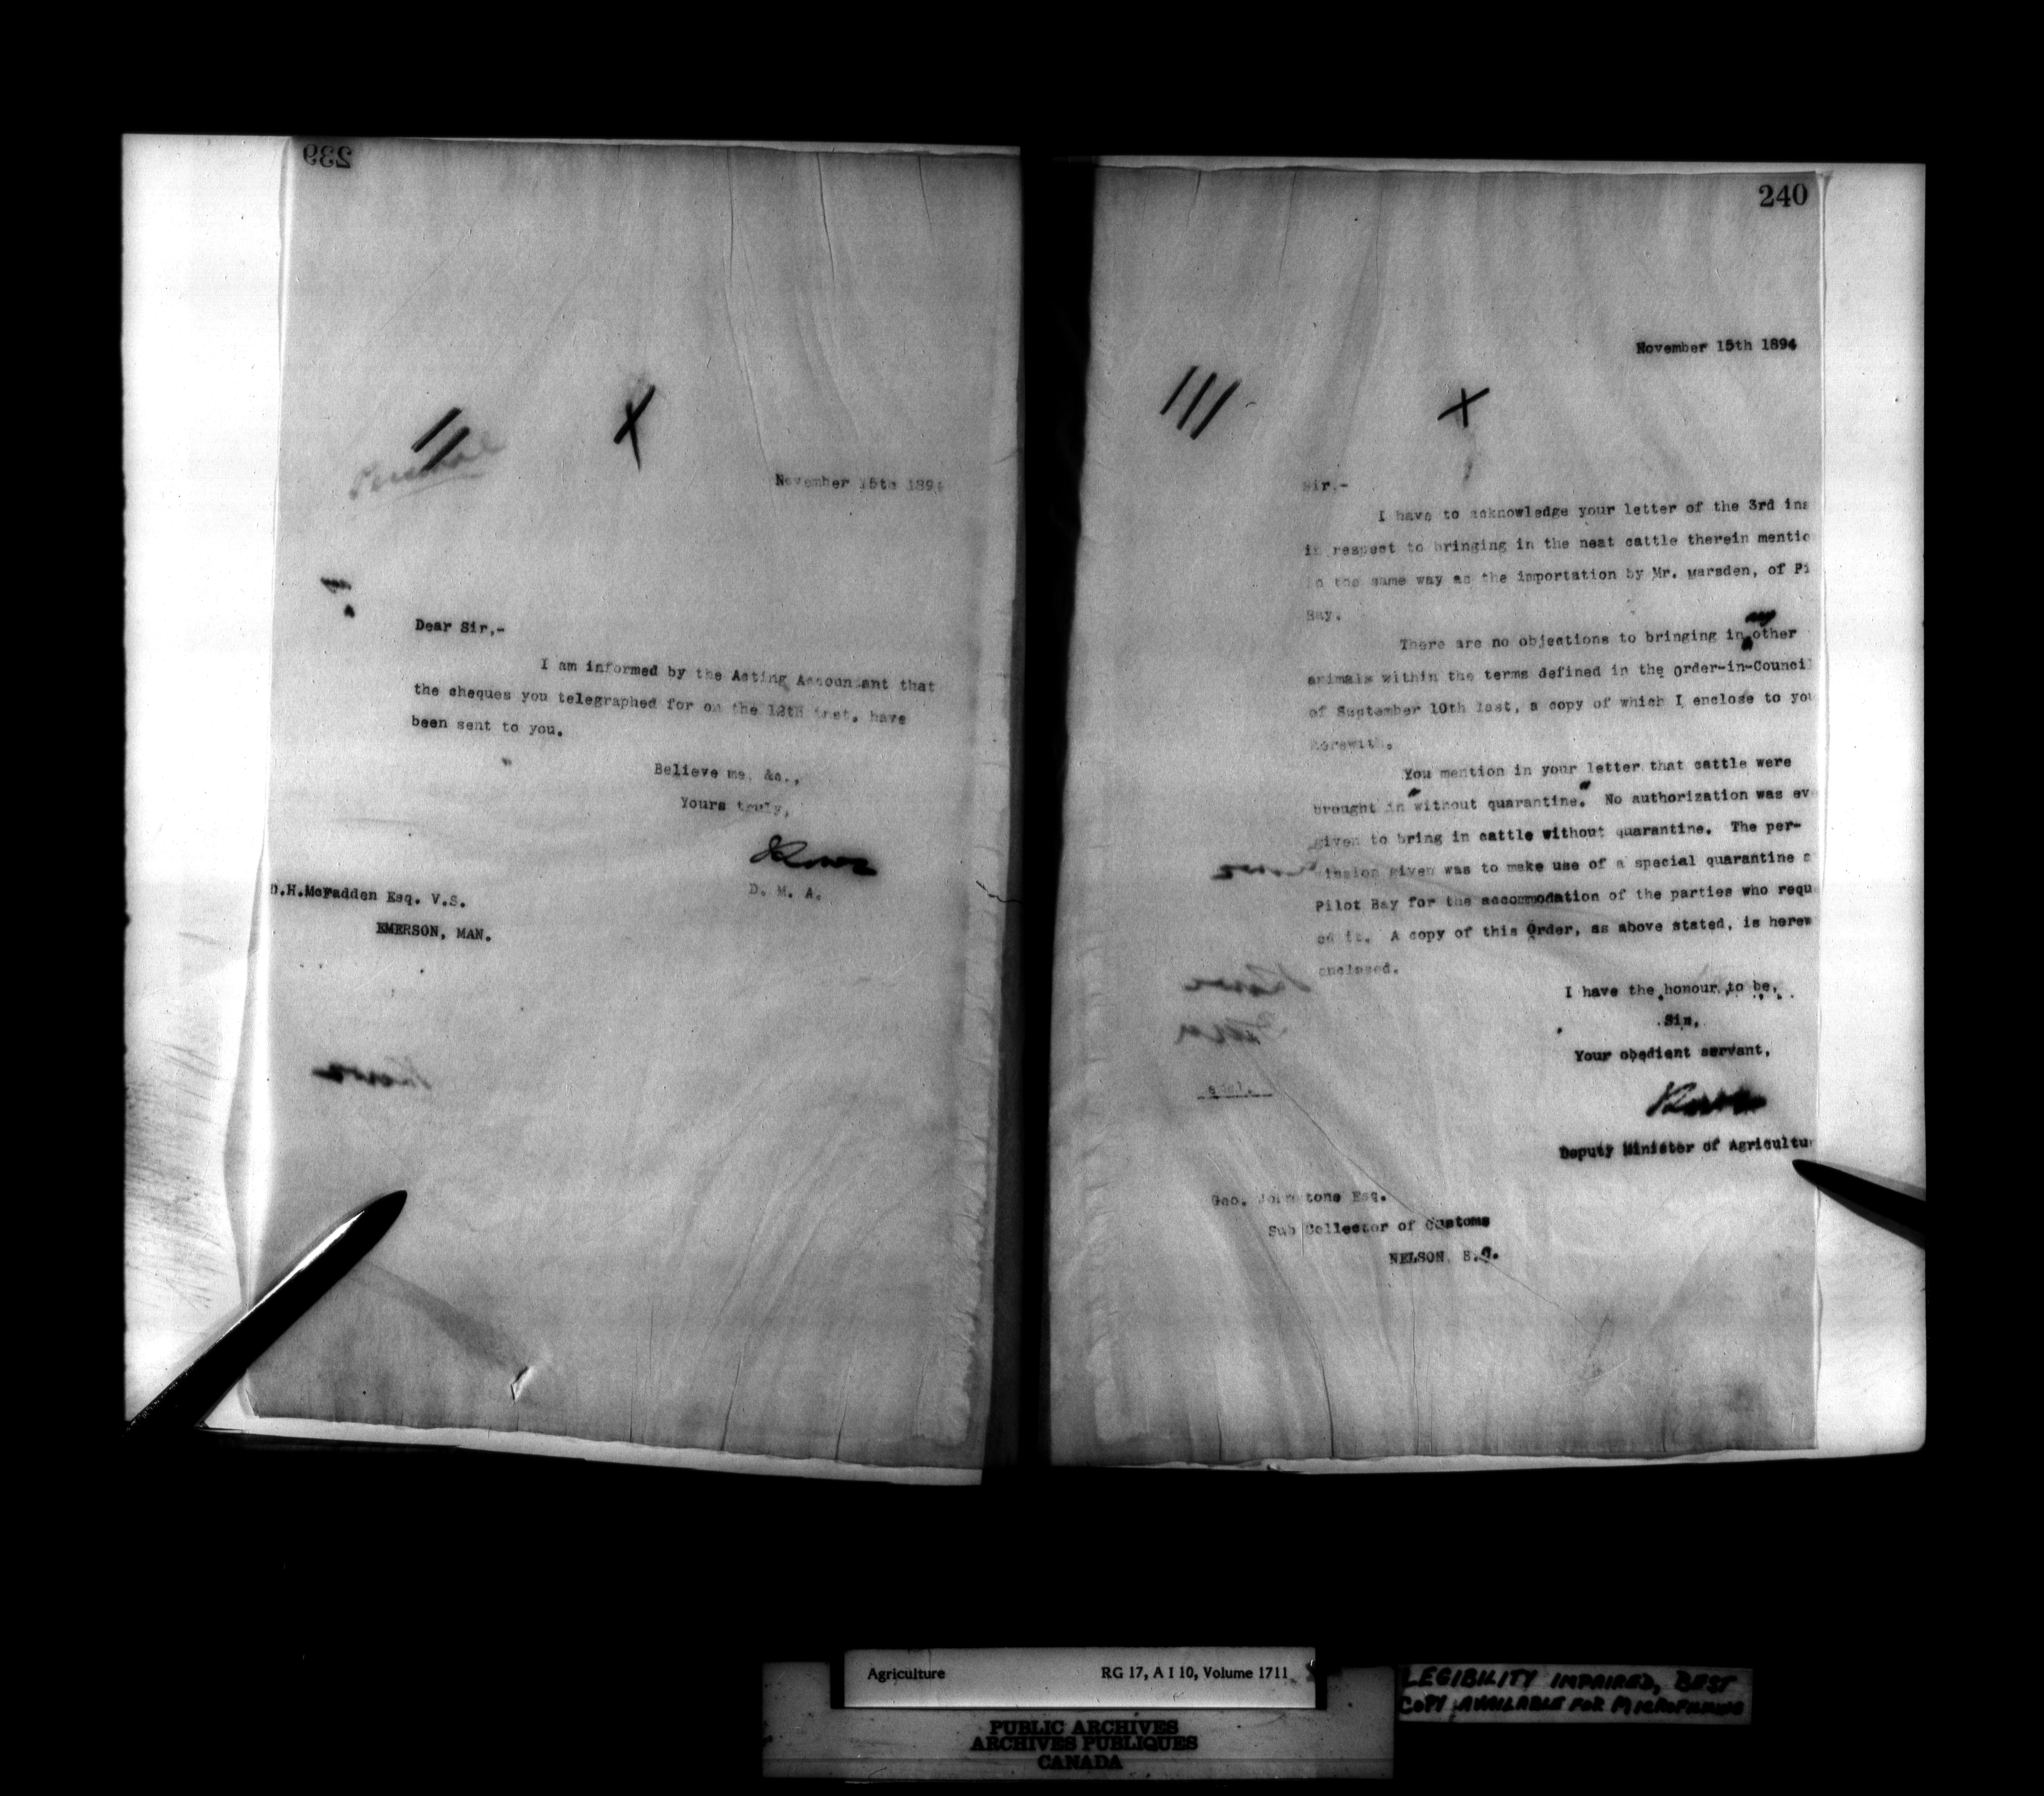 239
Personal
November 15th 1894
Dear Sir,-
I am informed by the Acting Accountant that
the cheques you telegraphed for on the 12th inst. have
been sent to you.
Believe me, &c.,
Yours truly,
D. M. A.
D.H.McFadden Esq. V.S.
EMERSON, MAN.
240
November 15th 1894
Sir,-
I have to acknowledge your letter of the 3rd ins
in respect to bringing in the neat cattle therein mentio
in the same way as the importation by Mr. Marsden, of Pi
Bay.
any
There are no objections to bringing in other
animals within the terms defined in the Order-in-Council
of September 10th last, a copy of which I enclose to you
herewith.
You mention in your letter that cattle were
brought in "without quarantine." No authorization was eve
given to bring in cattle without quarantine. The per-
mission given was to make use of a special quarantine a
Pilot Bay for the accommodation of the parties who requ
ed it. A copy of this Order, as above stated, is herew
enclosed.
I have the honour to be,
Sir,
Your obedient servant,
encl.
Deputy Minister of Agricultu
Geo. Johnstone Esq.
Sub Collector of Customs
NELSON, B.C.
Agriculture RG 17, A I 10, Volume 1711
LEGIBILITY IMPAIRED, BEST
COPY AVAILABLE FOR MICROFILMING
PUBLIC ARCHIVES
ARCHIVES PUBLIQUES
CANADA